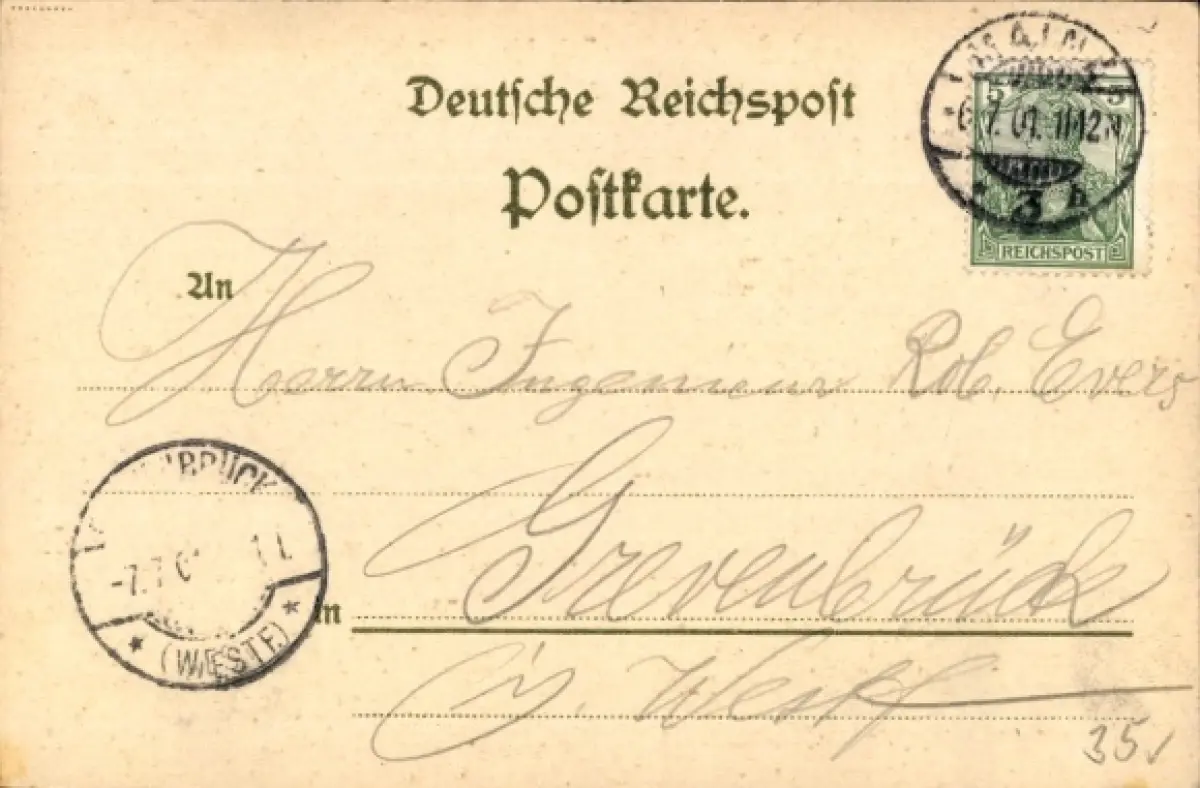 Deutsche Reichspost
Postkarte.
5 5
6.7.01. 11-12 N
* 3 h
REICHSPOST
An
Herrn Ingenieur Rob. Evers
BRÜCK
-7.7.0
* (WESTF) *
in
Grevenbrück
i/ Westf
35